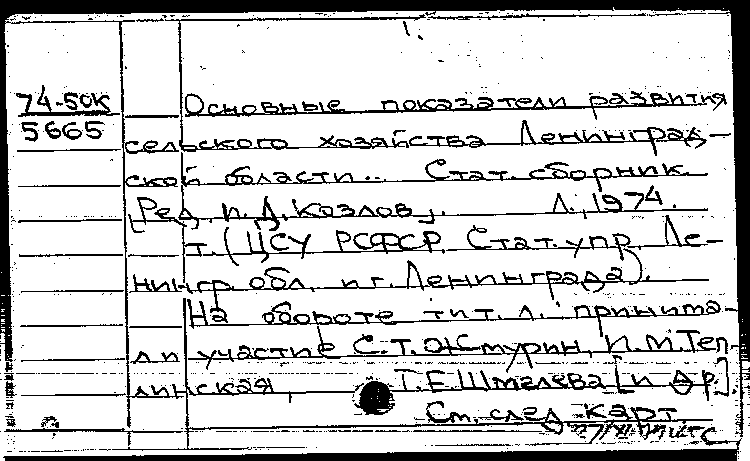 74-50К
5665
Основные показатели развития
сельского хозяйства Ленинград-
ской области... Стат. сборник.
[Ред. П. Д. Козлов]. Л., 1974.
т. (ЦСУ РСФСР. Стат. упр. Ле-
нингр. обл. и г. Ленинграда).
На обороте тит. л.: принима-
ли участие С.Т. Ожмурин, П.М. Теп-
линская, Т.Е. Шмелева [и др.].
См. след. карт.